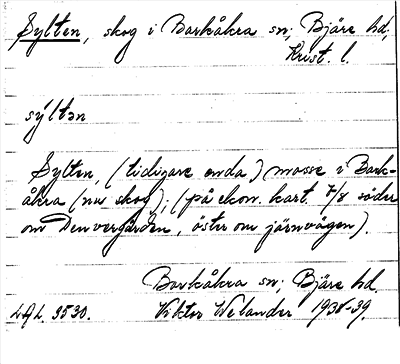 Sylten, skog i Barkåkra sn; Bjäre hd,
Krist. l.
sýltən
Sylten, (tidigare enda) mosse i Bark-
åkra (nu skog); (på ekon. kart. 7/8 söder
om Denvergården, öster om järnvägen).
Barkåkra sn; Bjäre hd.
LAL. 3530. Viktor Welander 1938-39.